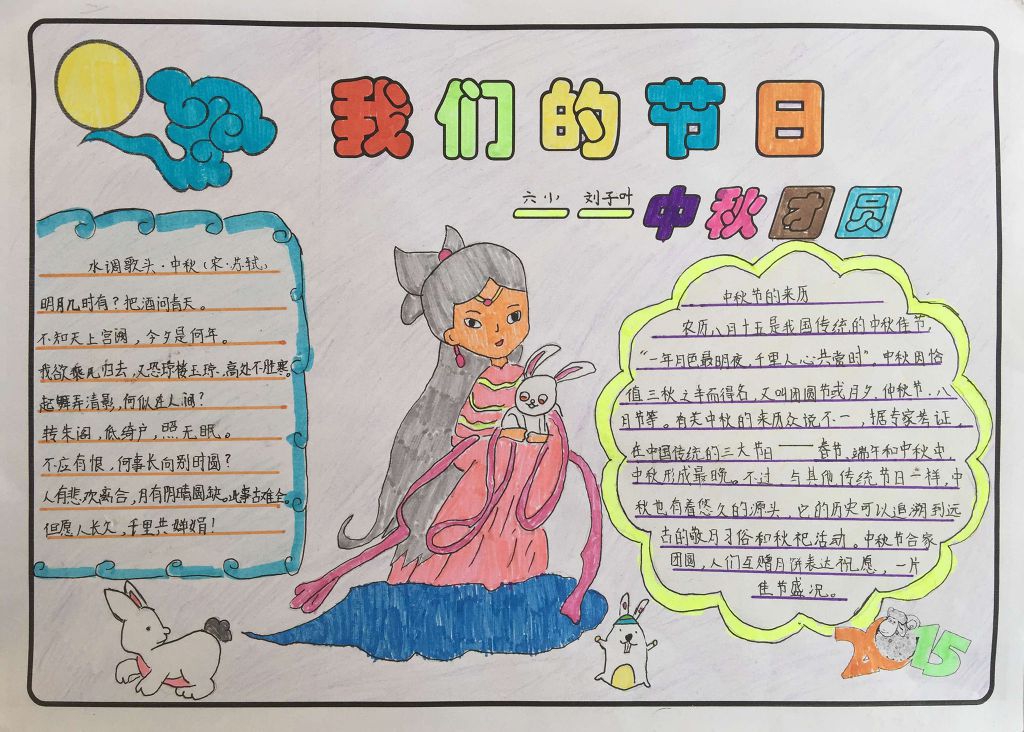 我们的节日
六小 刘子叶 中秋团圆
水调歌头·中秋(宋·苏轼)
明月几时有?把酒问青天。
不知天上宫阙,今夕是何年。
我欲乘风归去,又恐琼楼玉宇,高处不胜寒。
起舞弄清影,何似在人间?
转朱阁,低绮户,照无眠。
不应有恨,何事长向别时圆?
人有悲欢离合,月有阴晴圆缺。此事古难全。
但愿人长久,千里共婵娟!
中秋节的来历
农历八月十五是我国传统的中秋佳节,
“一年月色最明夜,千里人心共赏时”。中秋因恰
值三秋之半而得名,又叫团圆节或月夕,仲秋节、八
月节等。有关中秋的来历众说不一,据专家考证,
在中国传统的三大节日——春节、端午和中秋中,
中秋形成最晚。不过,与其他传统节日一样,中
秋也有着悠久的源头,它的历史可以追溯到远
古的敬月习俗和秋祀活动。中秋节合家
团圆,人们互赠月饼表达祝愿,一片
佳节盛况。
2015